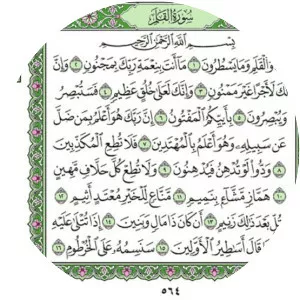 سُورَةُ القَلَمِ
بِسْمِ اللَّهِ الرَّحْمَٰنِ الرَّحِيمِ
وَالْقَلَمِ وَمَا يَسْطُرُونَ ١ مَا أَنتَ بِنِعْمَةِ رَبِّكَ بِمَجْنُونٍ ٢ وَإِنَّ
لَكَ لَأَجْرًا غَيْرَ مَمْنُونٍ ٣ وَإِنَّكَ لَعَلَىٰ خُلُقٍ عَظِيمٍ ٤ فَسَتُبْصِرُ
وَيُبْصِرُونَ ٥ بِأَييِّكُمُ الْمَفْتُونُ ٦ إِنَّ رَبَّكَ هُوَ أَعْلَمُ بِمَن ضَلَّ
عَن سَبِيلِهِ وَهُوَ أَعْلَمُ بِالْمُهْتَدِينَ ٧ فَلَا تُطِعِ الْمُكَذِّبِينَ
٨ وَدُّوا لَوْ تُدْهِنُ فَيُدْهِنُونَ ٩ وَلَا تُطِعْ كُلَّ حَلَّافٍ مَّهِينٍ
١٠ هَمَّازٍ مَّشَّاءٍ بِنَمِيمٍ ١١ مَّنَّاعٍ لِّلْخَيْرِ مُعْتَدٍ أَثِيمٍ ١٢
عُتُلٍّ بَعْدَ ذَٰلِكَ زَنِيمٍ ١٣ أَن كَانَ ذَا مَالٍ وَبَنِينَ ١٤ إِذَا تُتْلَىٰ عَلَيْهِ
قَالَ أَسَاطِيرُ الْأَوَّلِينَ ١٥ سَنَسِمُهُ عَلَى الْخُرْطُومِ ١٦
٥٦٤